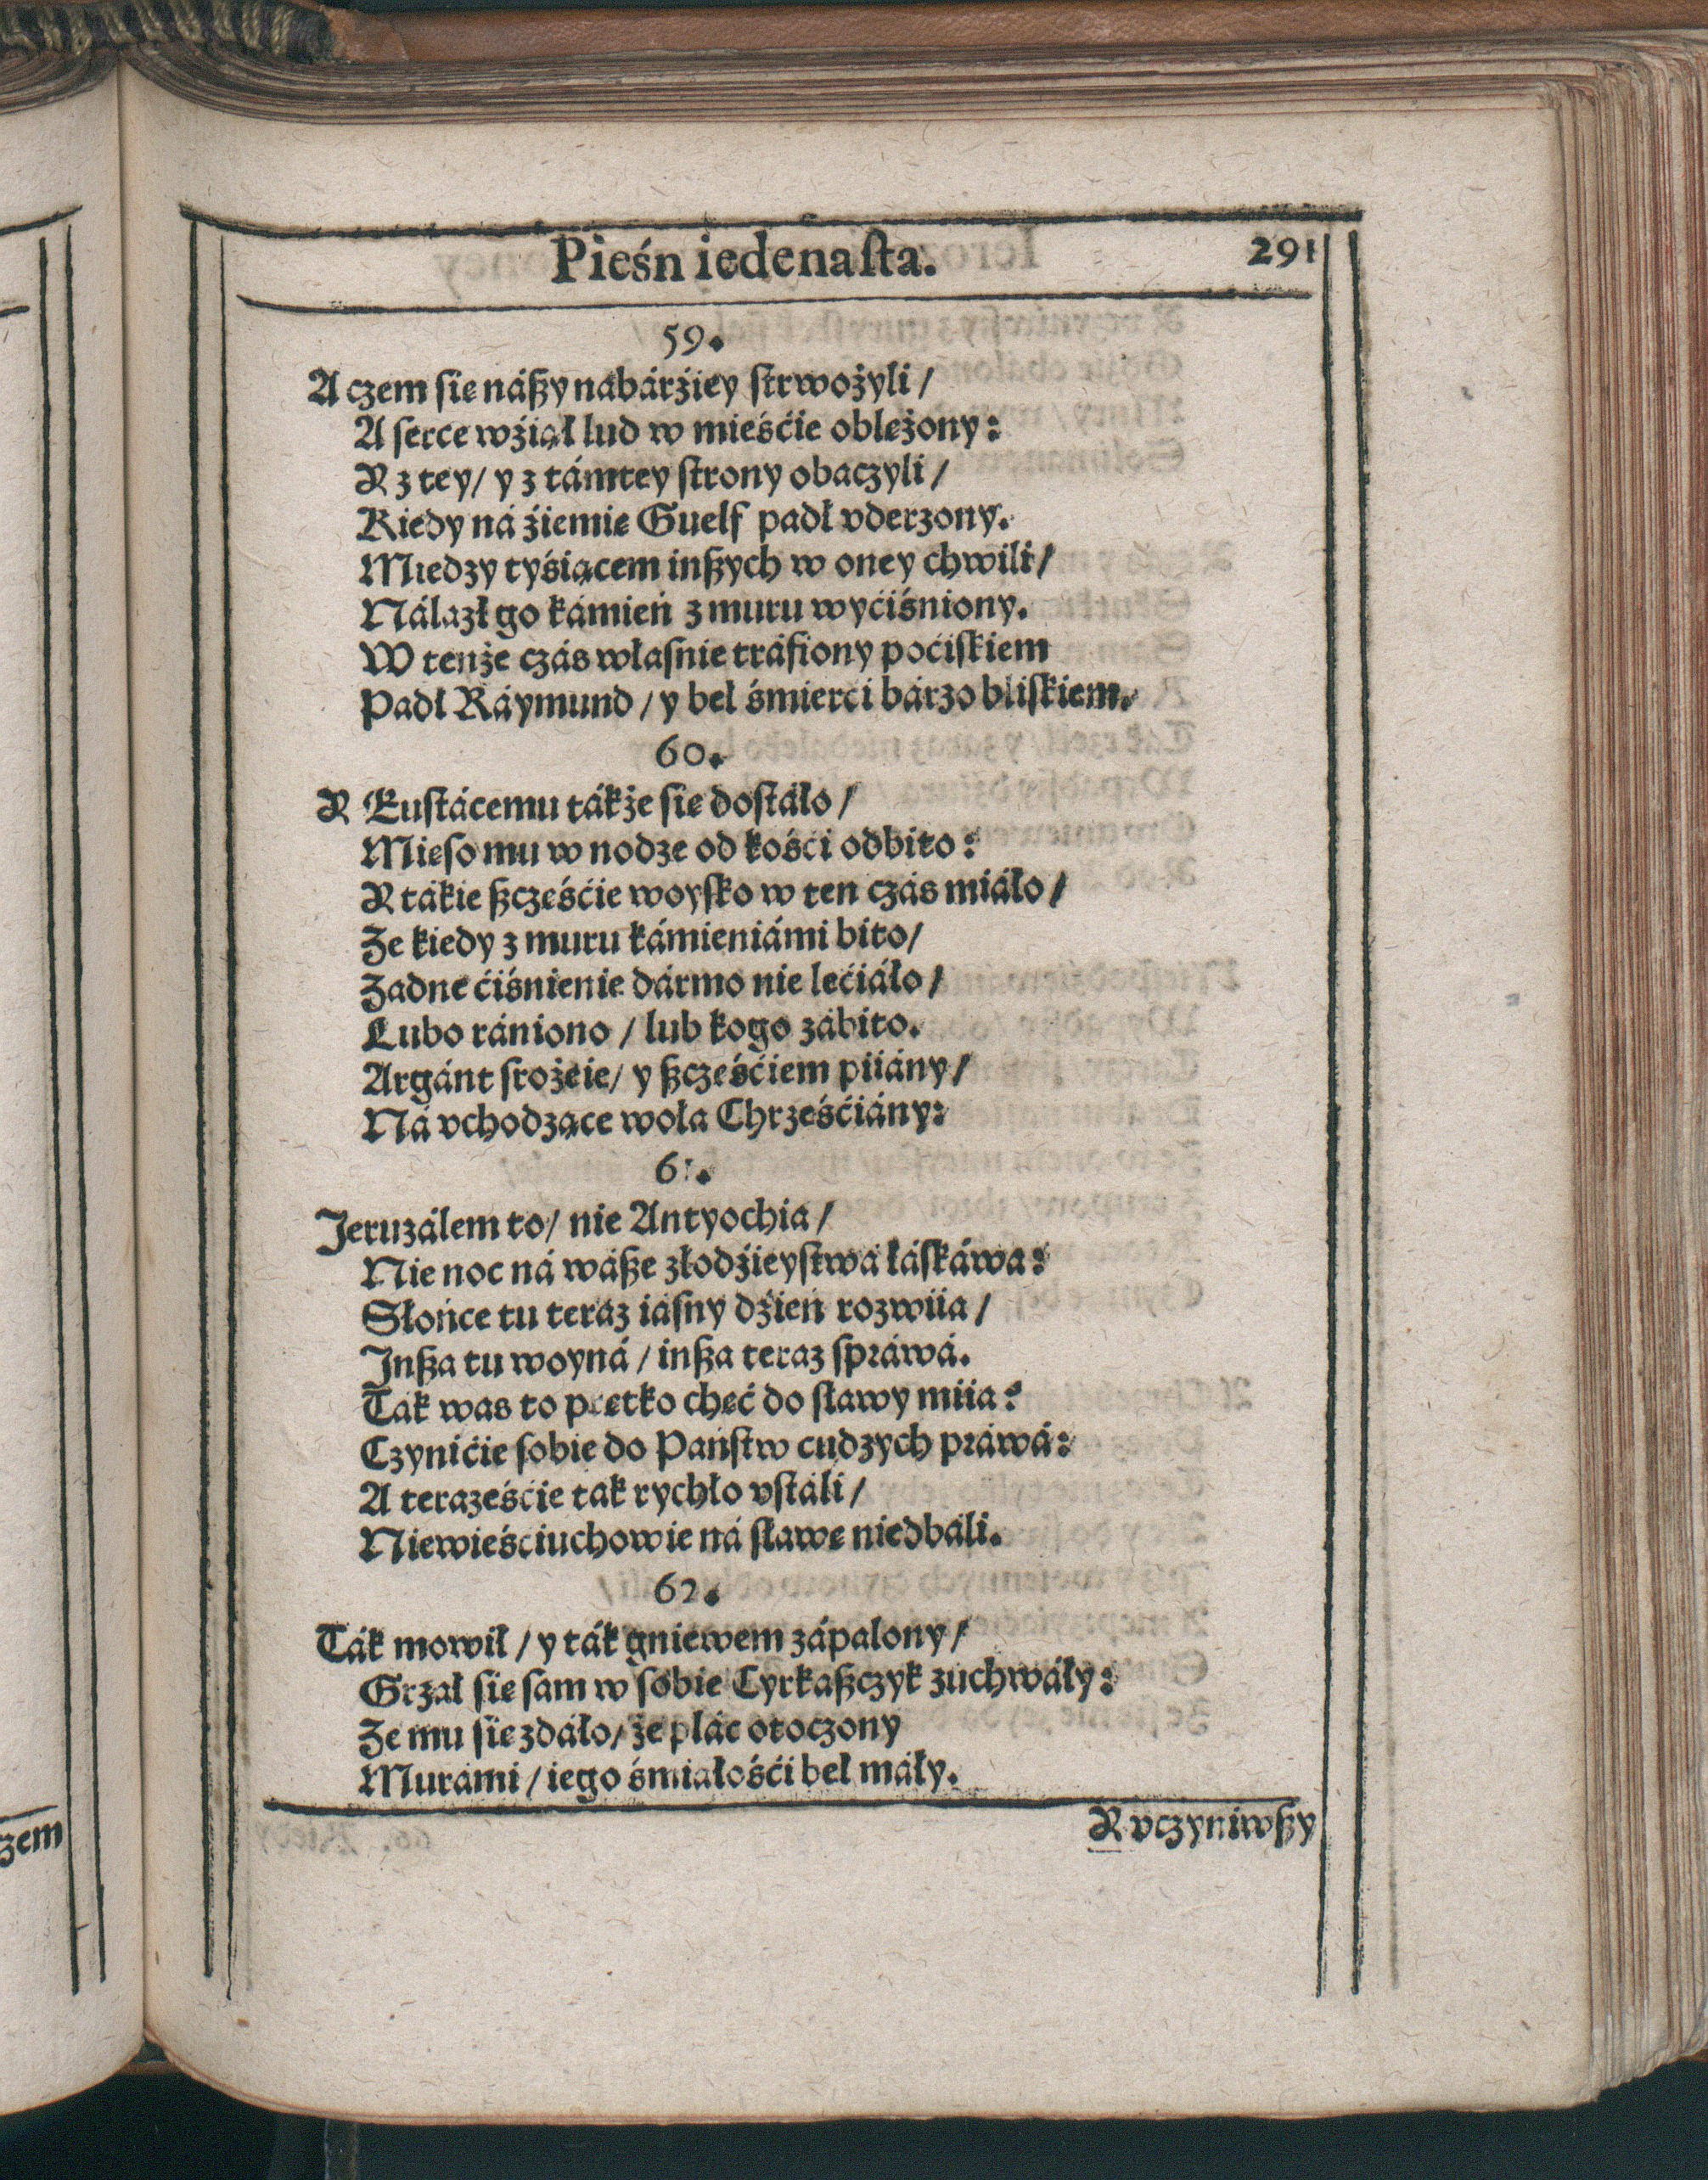 Pieśń iedenaſta.
291
59.
A czem ſie náßy nabárźiey ſtrwożyli /
A ſerce wźiął lud w mieśćie oblężony:
Y z tey / y z támtey ſtrony obaczyli /
Kiedy ná źiemię Guelf padł vderzony.
Miedzy tyśiącem inßych w oney chwili /
Nálazł go kámień z muru wyćiśniony.
W tenże czás właſnie tráfiony poćiſkiem
Padł Ráymund / y beł śmierći bárzo bliſkiem.
60.
Y Euſtácemu tákże ſie doſtáło /
Mięſo mu w nodze od kośći odbito:
Y tákie ßczęśćie woyſko w ten czás miáło /
Że kiedy z muru kámieniámi bito /
Żadne ćiśnienie dármo nie lećiáło /
Lubo rániono / lub kogo zábito.
Argánt ſrożeie / y ßczęśćiem piiány /
Ná vchodzące woła Chrześćiány:
61.
Jeruzálem to / nie Antyochia /
Nie noc ná wáße złodźieyſtwá łáſkáwa:
Słońce tu teraz iáſny dźień rozwiia /
Jnßa tu woyná / inßa teraz ſpráwá.
Ták was to prętko chęć do ſławy miia:
Czynićie ſobie do Páńſtw cudzych práwá:
A teraześćie tak rychło vſtáli /
Niewieśćiuchowie ná ſławę niedbáli.
62.
Ták mowił / y ták gniewem zápalony /
Grzał ſie ſam w ſobie Cyrkaßczyk zuchwáły:
Że mu ſie zdáło / że plác otoczony
Murámi / iego śmiáłośći beł máły.
Y vczyniwßy
zem